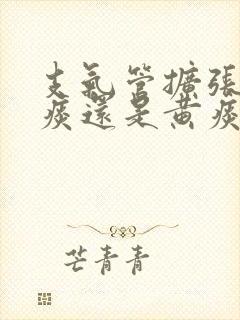 支氣管擴張
痰還是黃痰
芒青青